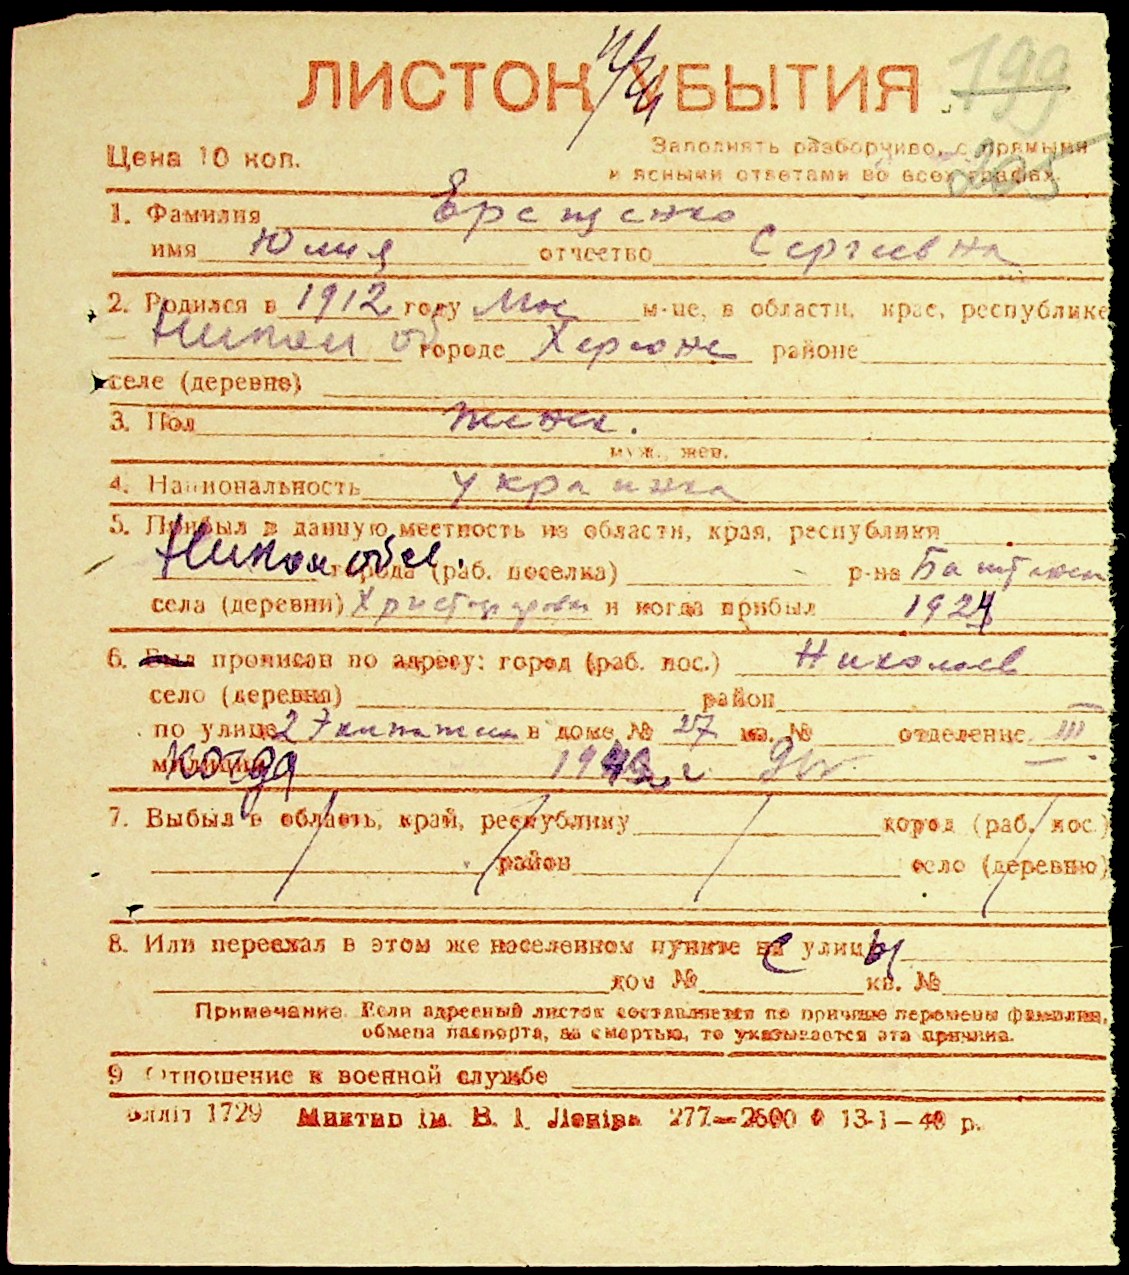 ЛИСТОК УБЫТИЯ 199
Цена 10 коп.
Заполнять разборчиво, с прямыми
и ясными ответами во всех графах. 205
1. Фамилия Ерещенко
имя Юлия отчество Сергеевна
2. Родился в 1912 году м-це, в области, крае, республике
городе Херсоне районе
селе (деревне)
3. Пол женск.
муж., жен.
4. Национальность украинка
5. Прибыл в данную местность из области, края, республики
Никол обл. города (раб. поселка) р-на
села (деревни) и когда прибыл 1924
6. Был прописан по адресу: город (раб. пос.) Николаев
село (деревня) район
по улице 2 Экипажн в доме № 27 кв. № отделение III
милиции когда г.
7. Выбыл в область, край, республику город (раб. пос.)
район село (деревню)
8. Или переехал в этом же населенном пункте на улицу
дом № кв. №
Примечание. Если адресный листок составляется по причине перемены фамилии,
обмена паспорта, за смертью, то указывается эта причина.
9 Отношение к военной службе
Бллiт 1729 Миктип iм. В. I. Ленiна 277—2600 13-1—40 р.